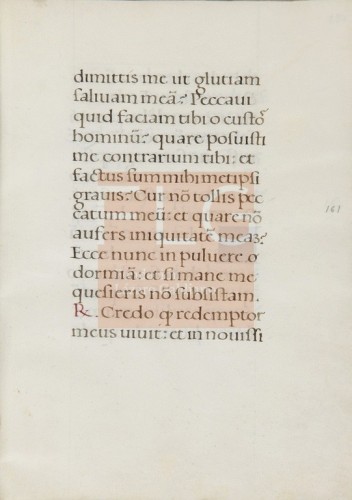 dimittis me ut glutiam
salivam meā? Peccaui
quid faciam tibi o custo᷒
hominū? quare posuisti
me contrarium tibi: et
factus sum mihi metipsi
grauis? Cur nō tollis pec
catum meū: et quare nō
aufers iniquitatē meaʒ?
Ecce nunc in puluere o
dormiā: et si mane me
quesieris nō subsistam.
℞. Credo ꝙ redemptor
meus uiuit: et in nouissi
161